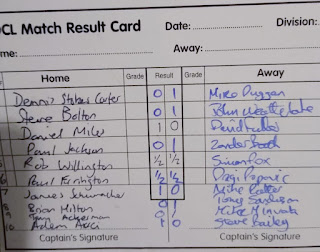 OCL Match Result Card Date: Division:
me: Away:
Home Grade Result Grade Away
Dennis Stubbs Carter 0 1 Mike Duggan
Steve Bolton 0 1 John
Daniel Miles 1 0 David
Paul Jackson 0 1 Zander
Rob Willington ½ ½ Simon Fox
6 Paul Errington ½ ½ Dagi
7 James Schumacher 1 0 Mike
8 Brian Milton 0 1 Tony
Tony Ackerman 0 Mike
10 Adem 0 1 Steve Bailey
Captain's Signature Captain's Signature